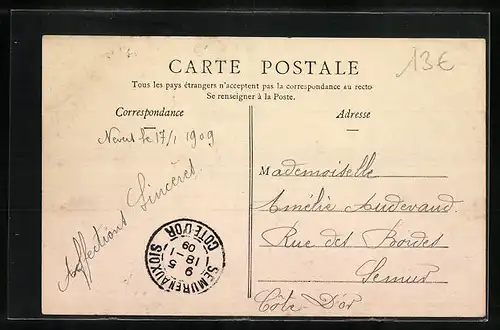 13€
CARTE POSTALE
Tous les pays étrangers n'acceptent pas la correspondance au recto
Se renseigner à la Poste.
Correspondance
Adresse
le 17/1 1909
Affections Sincères.
Mademoiselle
Amélie Audevaud
Rue des Bordes
Semur
Côte d'Or
SEMUR EN AUXOIS
9
18 - 1
09
COTE D'OR